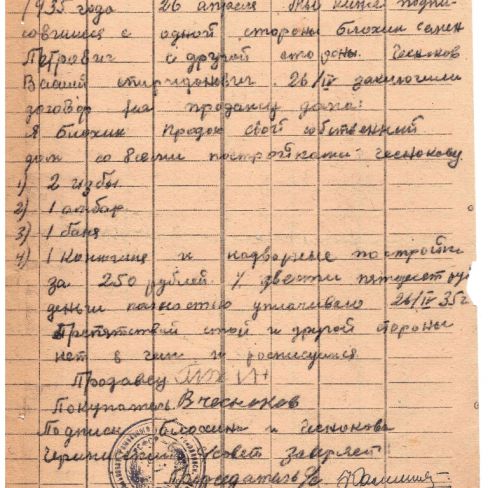 1935 года 26 апреля мы ниже подпи-
совшиеся с одной стороны Блохин Семен
Петрович с другой стороны Чесноков
Василий Спиридонович 26/IV заключили
договор на продажу дома:
Я Блохин продол свой собственный
дом со всеми постройками Чеснокову
1) 2 избы
2) 1 амбар
3) 1 баня
4) 1 Конюшня и надворные постройки
за 250 рублей. % двести пятьдесят руб
деньги полностью уплачивою 26/IV 35г
Препятствий с той и другой стороны
нет в чем и росписуимся
Продавец
Покупатель. В Чесноков
Подписи Блохина и Чеснокова
совет заверяет
Председатель с/с